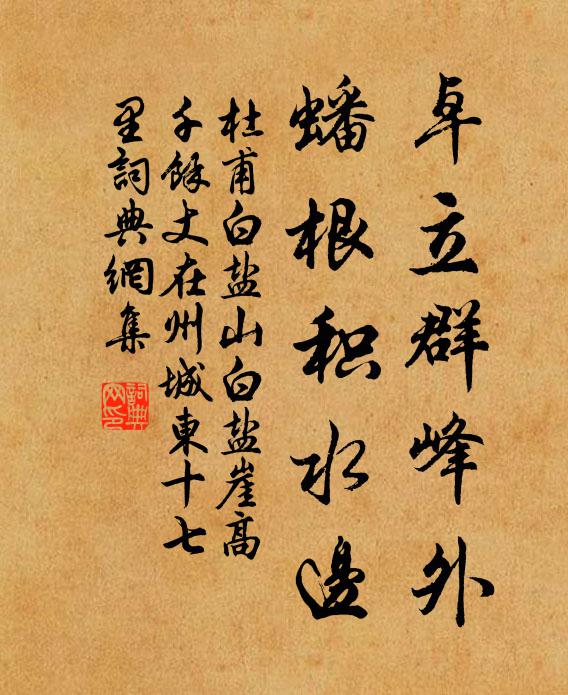 卓立群峰外
蟠根积水邊
杜甫白盐山白盐崖高
千餘丈在州城東十七
里詞典網集
詞典网印